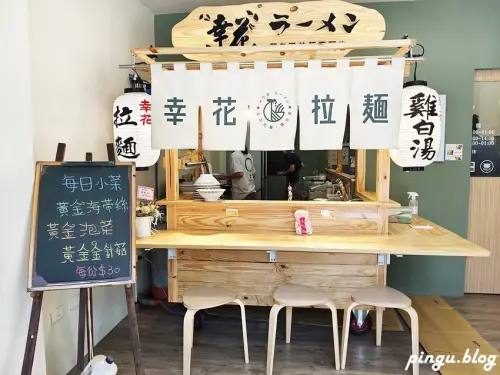 幸花 ラーメン
幸花 拉麵
幸花
拉麵
雞白湯
每日小菜
黃金海帶絲
黃金泡菜
黃金金針菇
每份$30
pingu.blog